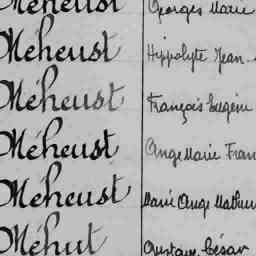 Méheust Georges Marie
Méheust Hippolyte Jean
Méheust François Eugène
Méheust Ange Marie Fran
Méheust Marie Ange Mathur
Méhut Gustave César